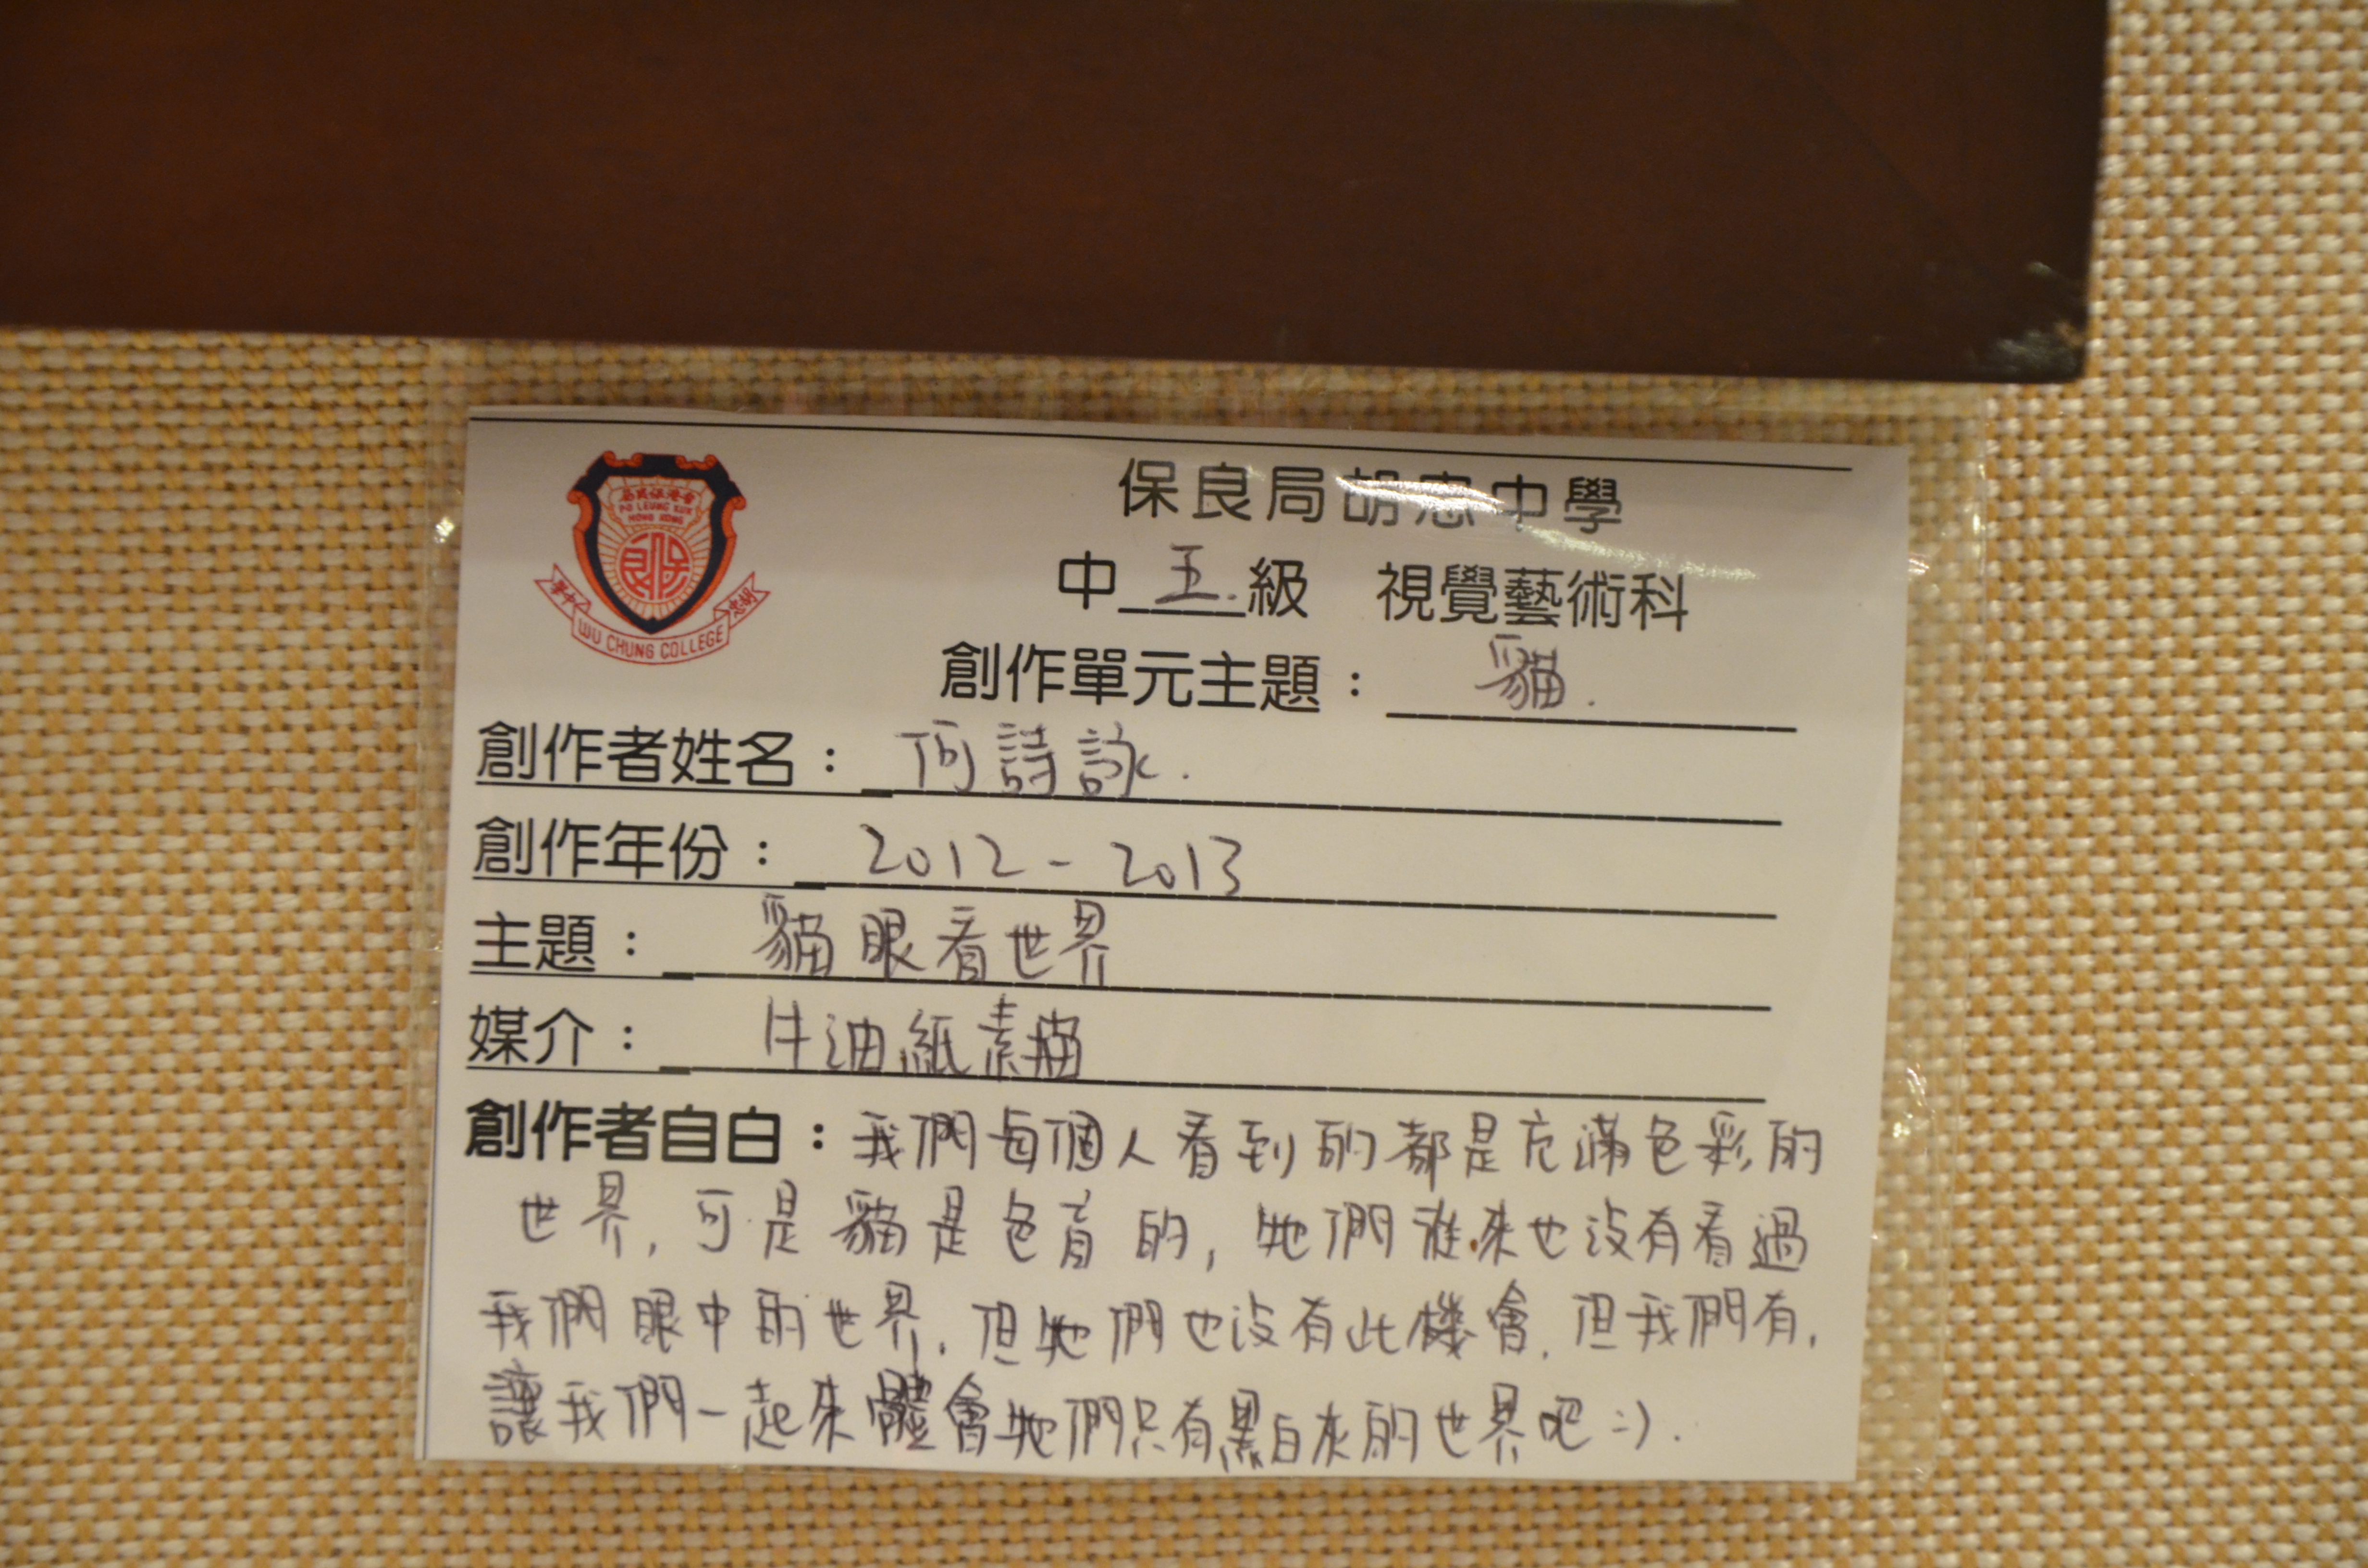 香港保良局
PO LEUNG KUK
HONG KONG
保良
胡忠中學
WU CHUNG COLLEGE
保良局胡忠中學
中 五. 級 視覺藝術科
創作單元主題： 貓.
創作者姓名： 何詩詠.
創作年份： 2012 - 2013
主題： 貓眼看世界
媒介： 牛油紙素描
創作者自白：我們每個人看到的都是充滿色彩的
世界, 可是貓是色盲的, 牠們從來也沒有看過
我們眼中的世界. 但牠們也沒有此機會. 但我們有,
讓我們一起來體會牠們只有黑白灰的世界吧 :).